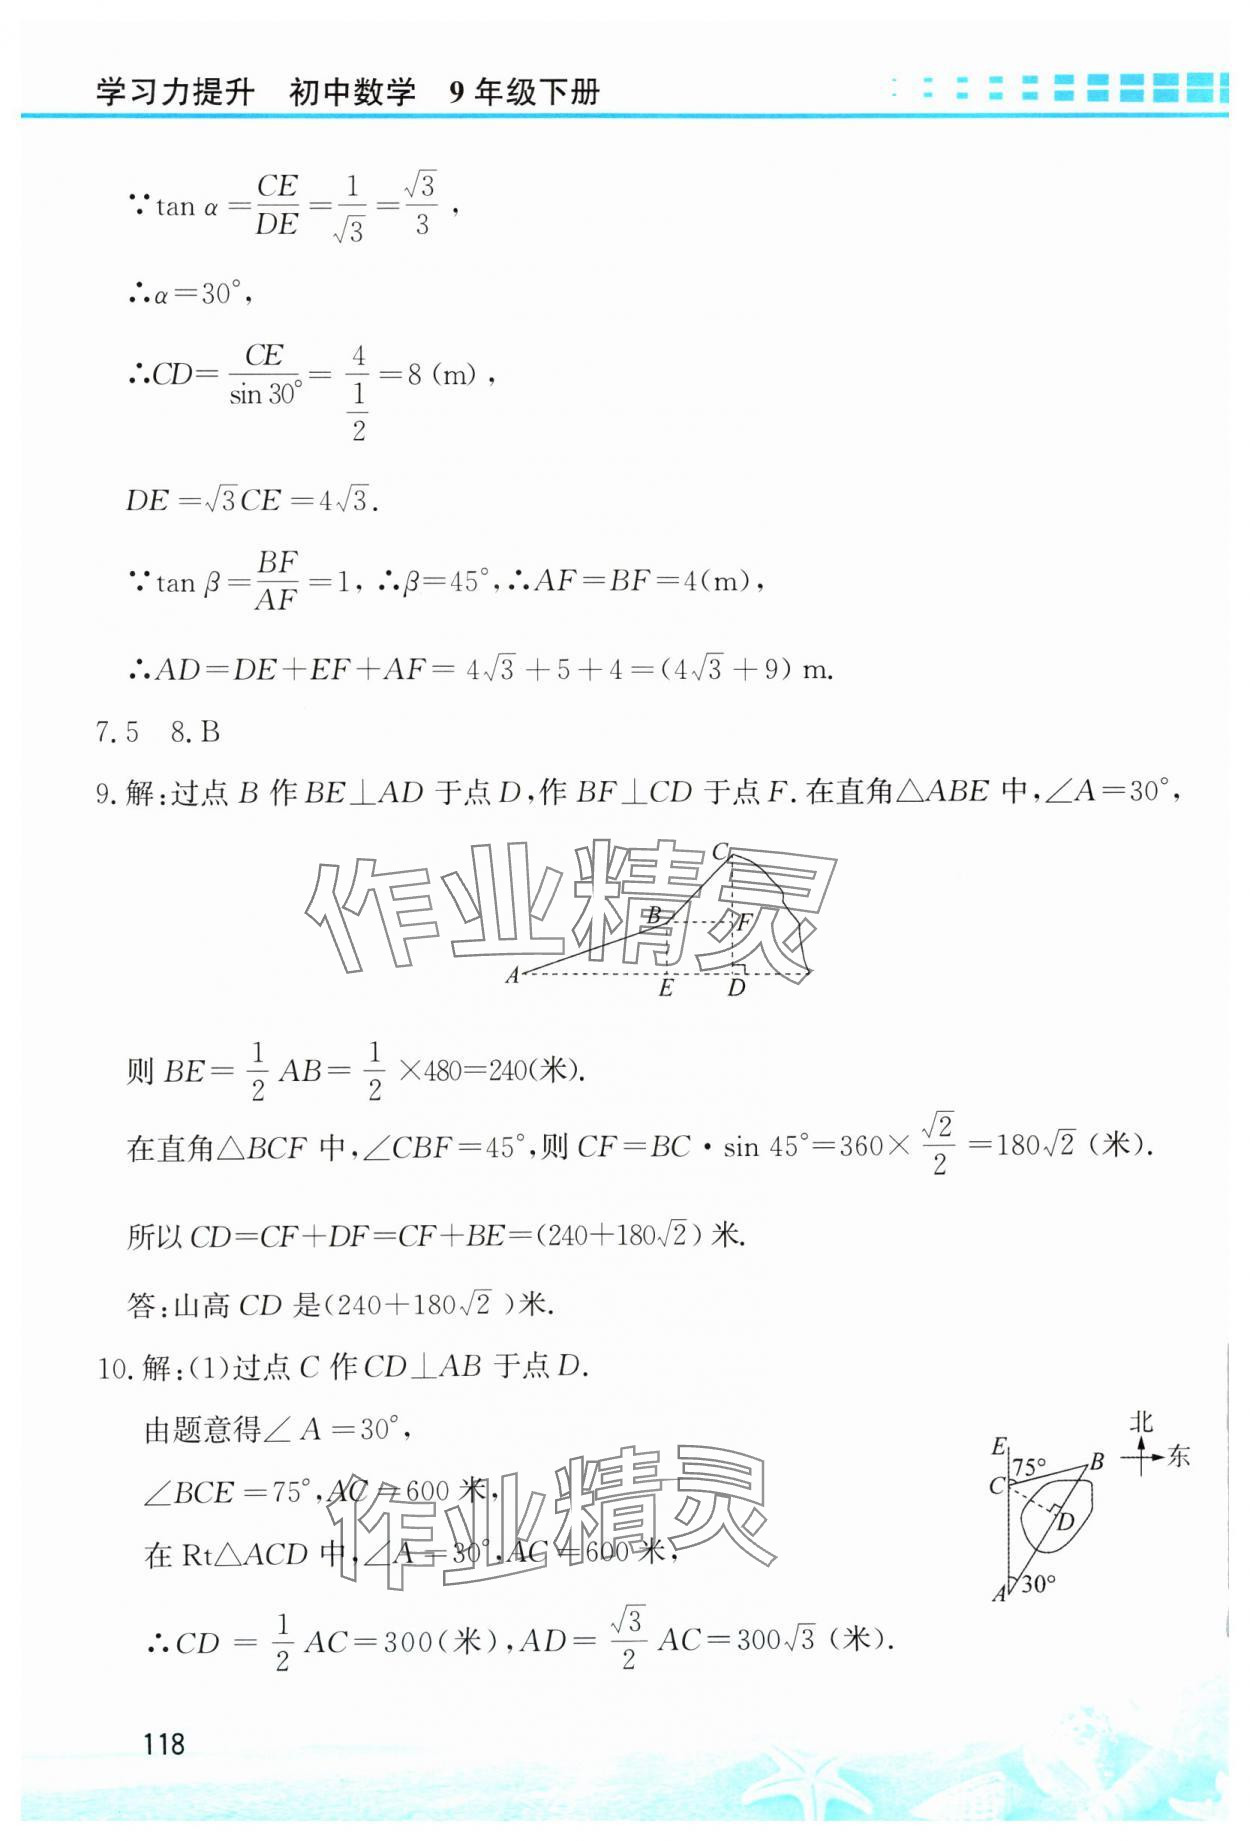 学习力提升　初中数学　9 年级下册
∵tan α=CE/DE=1/√3=√3/3,
∴α=30°,
∴CD=CE/sin 30°=4/(1/2)=8 (m),
DE=√3CE=4√3.
∵tan β=BF/AF=1, ∴β=45°,∴AF=BF=4(m),
∴AD=DE+EF+AF=4√3+5+4=(4√3+9) m.
7.5　8.B
9.解:过点 B 作 BE⊥AD 于点 D,作 BF⊥CD 于点 F.在直角△ABE 中,∠A=30°,
C
B
F
A
E
D
则 BE=1/2 AB=1/2×480=240(米).
在直角△BCF 中,∠CBF=45°,则 CF=BC·sin 45°=360×√2/2=180√2 (米).
所以 CD=CF+DF=CF+BE=(240+180√2) 米.
答:山高 CD 是(240+180√2 )米.
10.解:(1)过点 C 作 CD⊥AB 于点 D.
由题意得∠A=30°,
∠BCE=75°,AC=600 米,
在 Rt△ACD 中,∠A=30°,AC=600 米,
∴CD=1/2 AC=300(米),AD=√3/2 AC=300√3 (米).
北
东
E
75°
B
C
D
A
30°
118
作业精灵
作业精灵